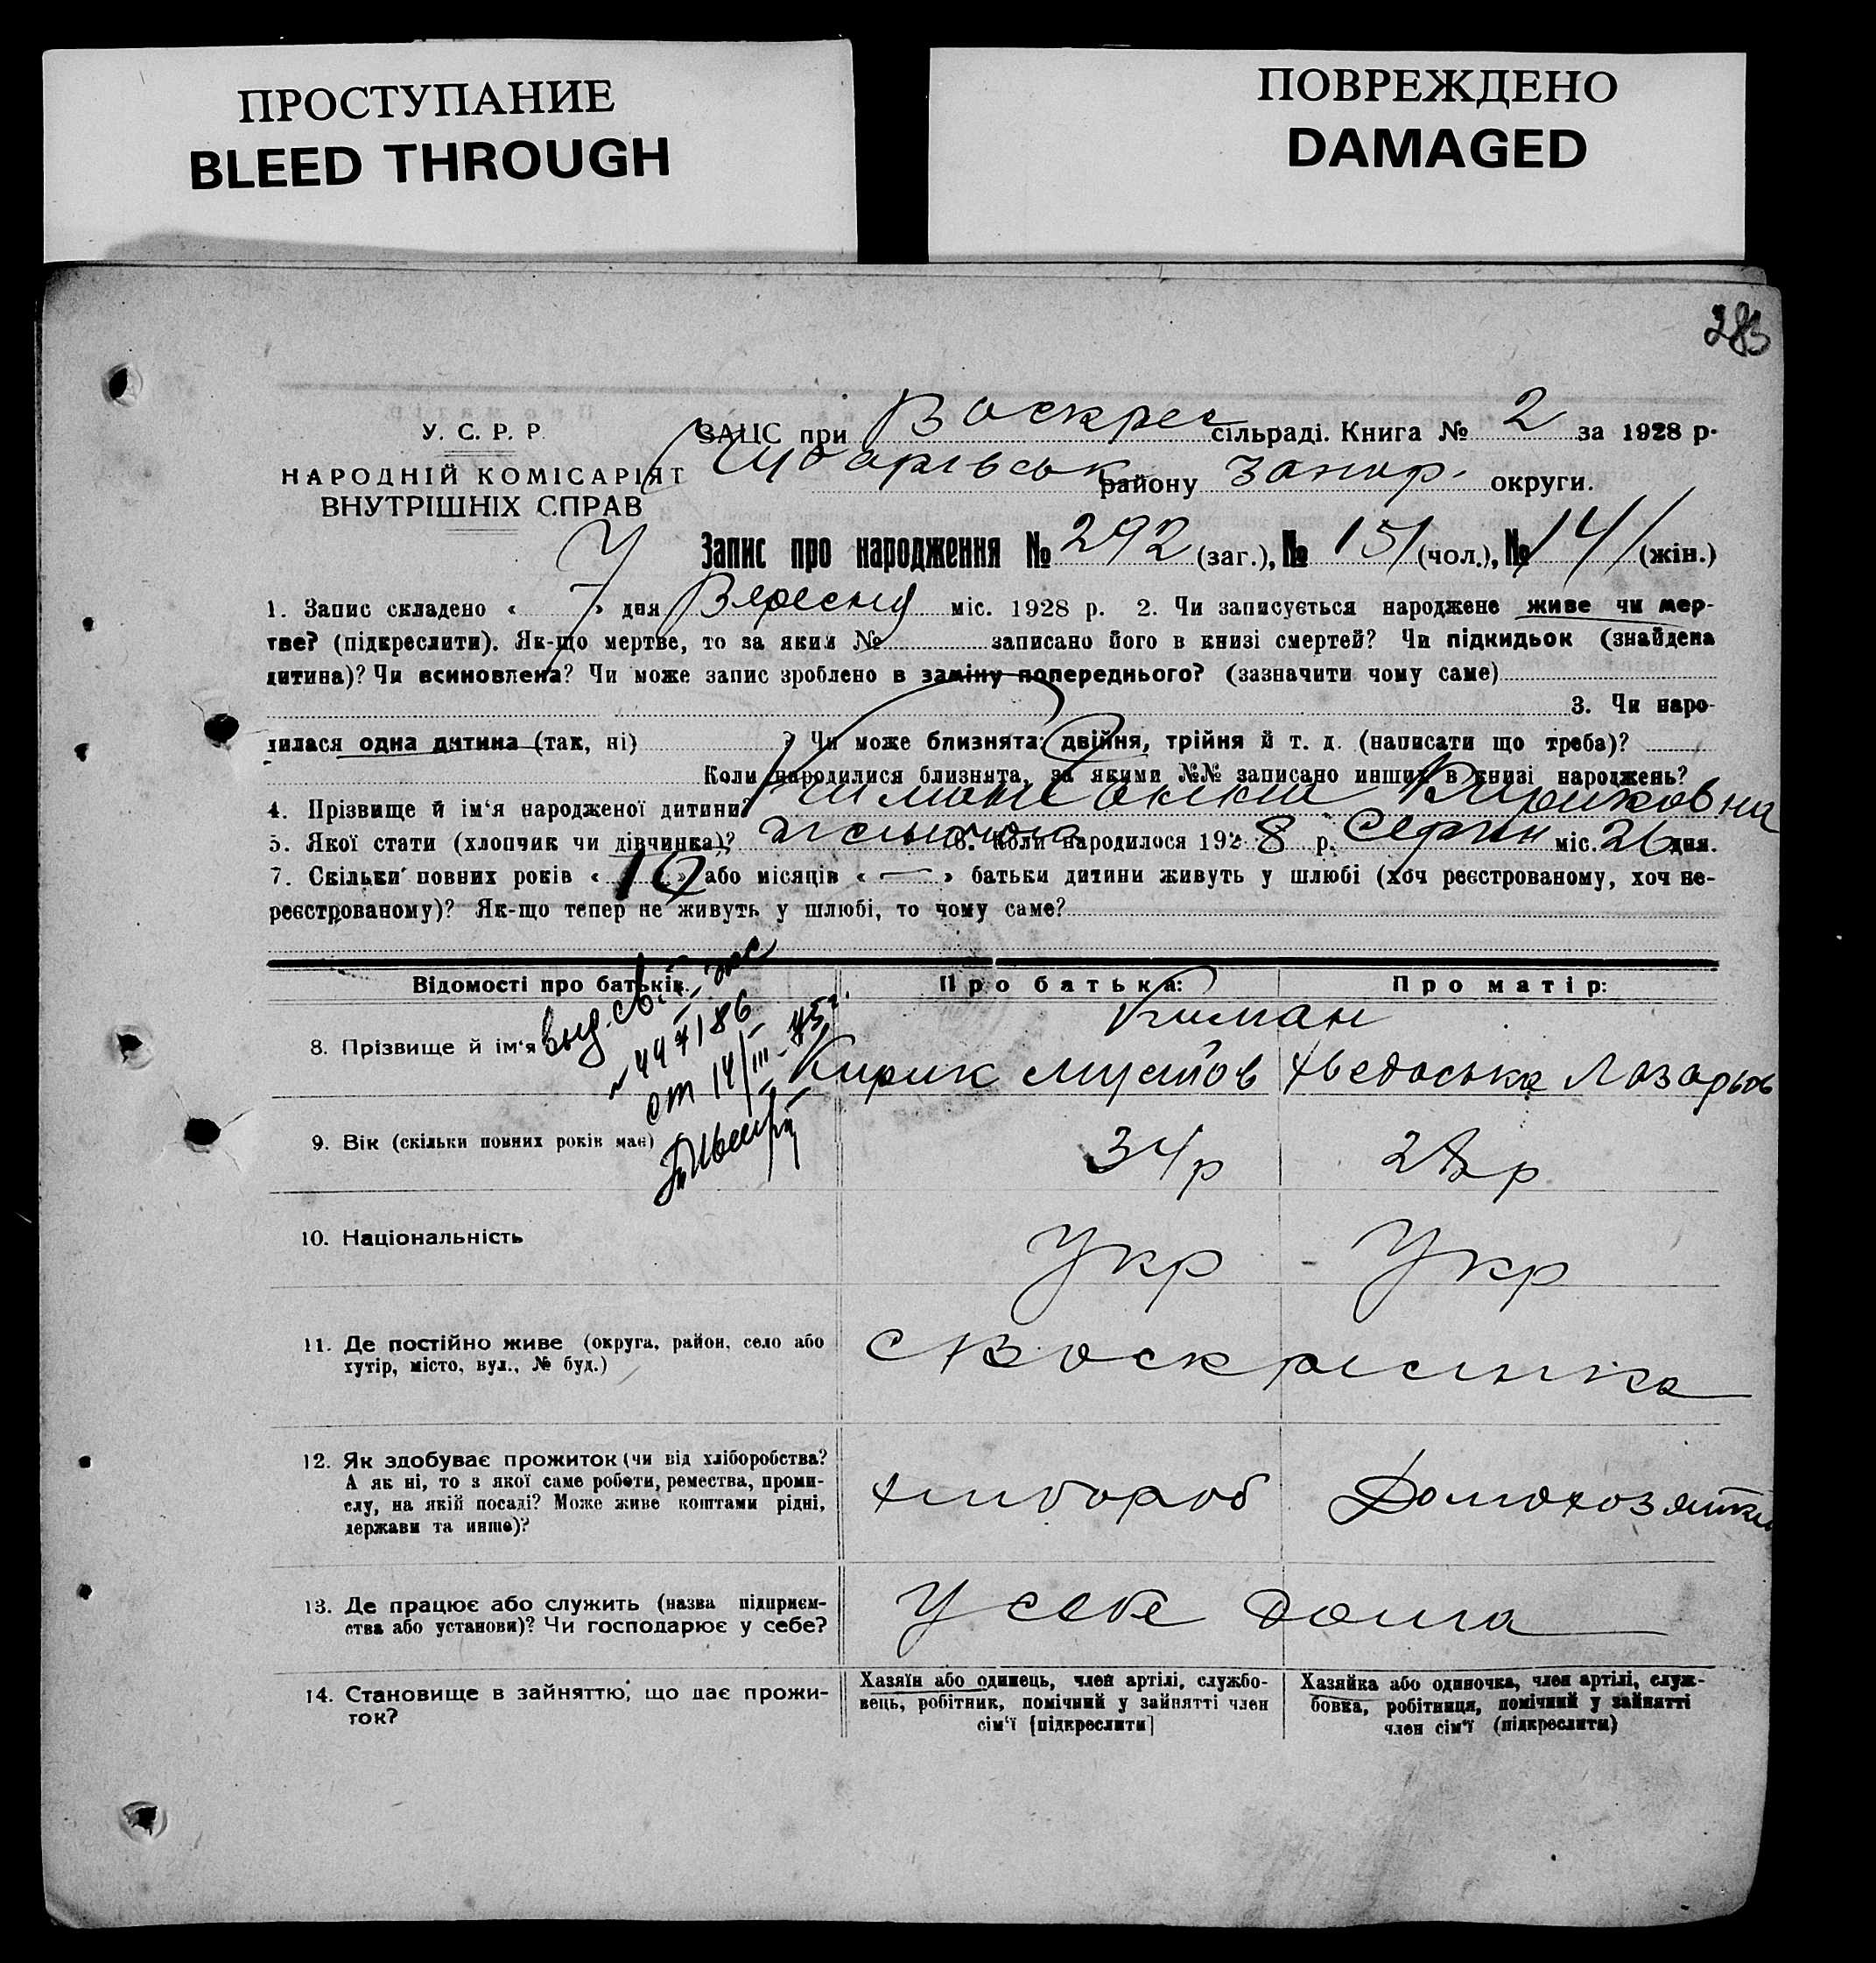 ПРОСТУПАНИЕ
BLEED THROUGH
ПОВРЕЖДЕНО
DAMAGED
283
У. С. Р. Р.
НАРОДНІЙ КОМІСАРІЯТ
ВНУТРІШНІХ СПРАВ
ЗАЦС при Воскрес сільраді. Книга № 2 за 1928 р.
Чубарівськ району Запор. округи.
Запис про народження № 292 (заг.), № 151 (чол.), № 141 (жін.)
1. Запис складено « 7 » дня Вересня міс. 1928 р. 2. Чи записується народжене живе чи мер-
тве? (підкреслити). Як-що мертве, то за яким № записано його в книзі смертей? Чи підкидьок (знайдена
дитина)? Чи всиновлена? Чи може запис зроблено в заміну попереднього? (зазначити чому саме)
3. Чи наро-
дилася одна дитина (так, ні) ? Чи може близнята: двійня, трійня й т. д. (написати що треба)?
Коли народилися близнята, за якими №№ записано инших в книзі народжень?
4. Прізвище й ім‘я народженої дитини? Кириковна
5. Якої стати (хлопчик чи дівчинка)? 6. Коли народилося 1928 р. Серпн міс. 26 дня.
7. Скільки повних років « 10 » або місяців « — » батьки дитини живуть у шлюбі (хоч реєстрованому, хоч не-
реєстрованому)? Як-що тепер не живуть у шлюбі, то чому саме?
Відомості про батьків. Про батька: Про матір:
выд. св.
447186
от 14/III-75г.
Киман
8. Прізвище й ім‘я Кирик Хведоська Лазарьов
9. Вік (скільки повних років має) 34р 28р
10. Національність Укр - Укр
11. Де постійно живе (округа, район, село або
хутір, місто, вул., № буд.)
с Воскрисинка
12. Як здобуває прожиток (чи від хліборобства?
А як ні, то з якої саме роботи, ремества, проми-
слу, на якій посаді? Може живе коштами рідні,
держави та инше)?
хлибороб Домохозяйка
13. Де працює або служить (назва підприєм-
ства або установи)? Чи господарює у себе?
У себе дома
14. Становище в зайняттю, що дає прожи-
ток?
Хазяїн або одинець, член артілі, службо-
вець, робітник, помічний у зайнятті член
сім‘ї [підкреслити]
Хазяйка або одиночка, член артілі, служ-
бовка, робітниця, помічний у зайнятті
член сім‘ї (підкреслити)